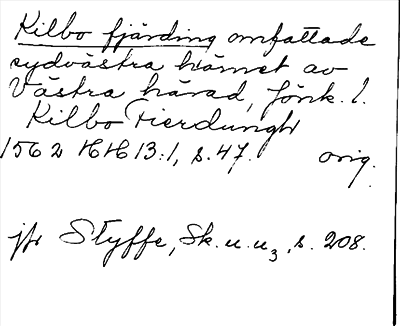 Kilbo fjärding omfattade
sydvästra hörnet av
Västra härad, Jönk. l.
Kilbo Fierdungh
1562 HH 13:1, s. 47. orig.
jfr Styffe, Sk. u. u3, s. 208.